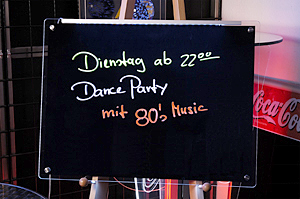 Dienstag ab 22⁰⁰
Dance Party
mit 80's Music
Coca-Cola